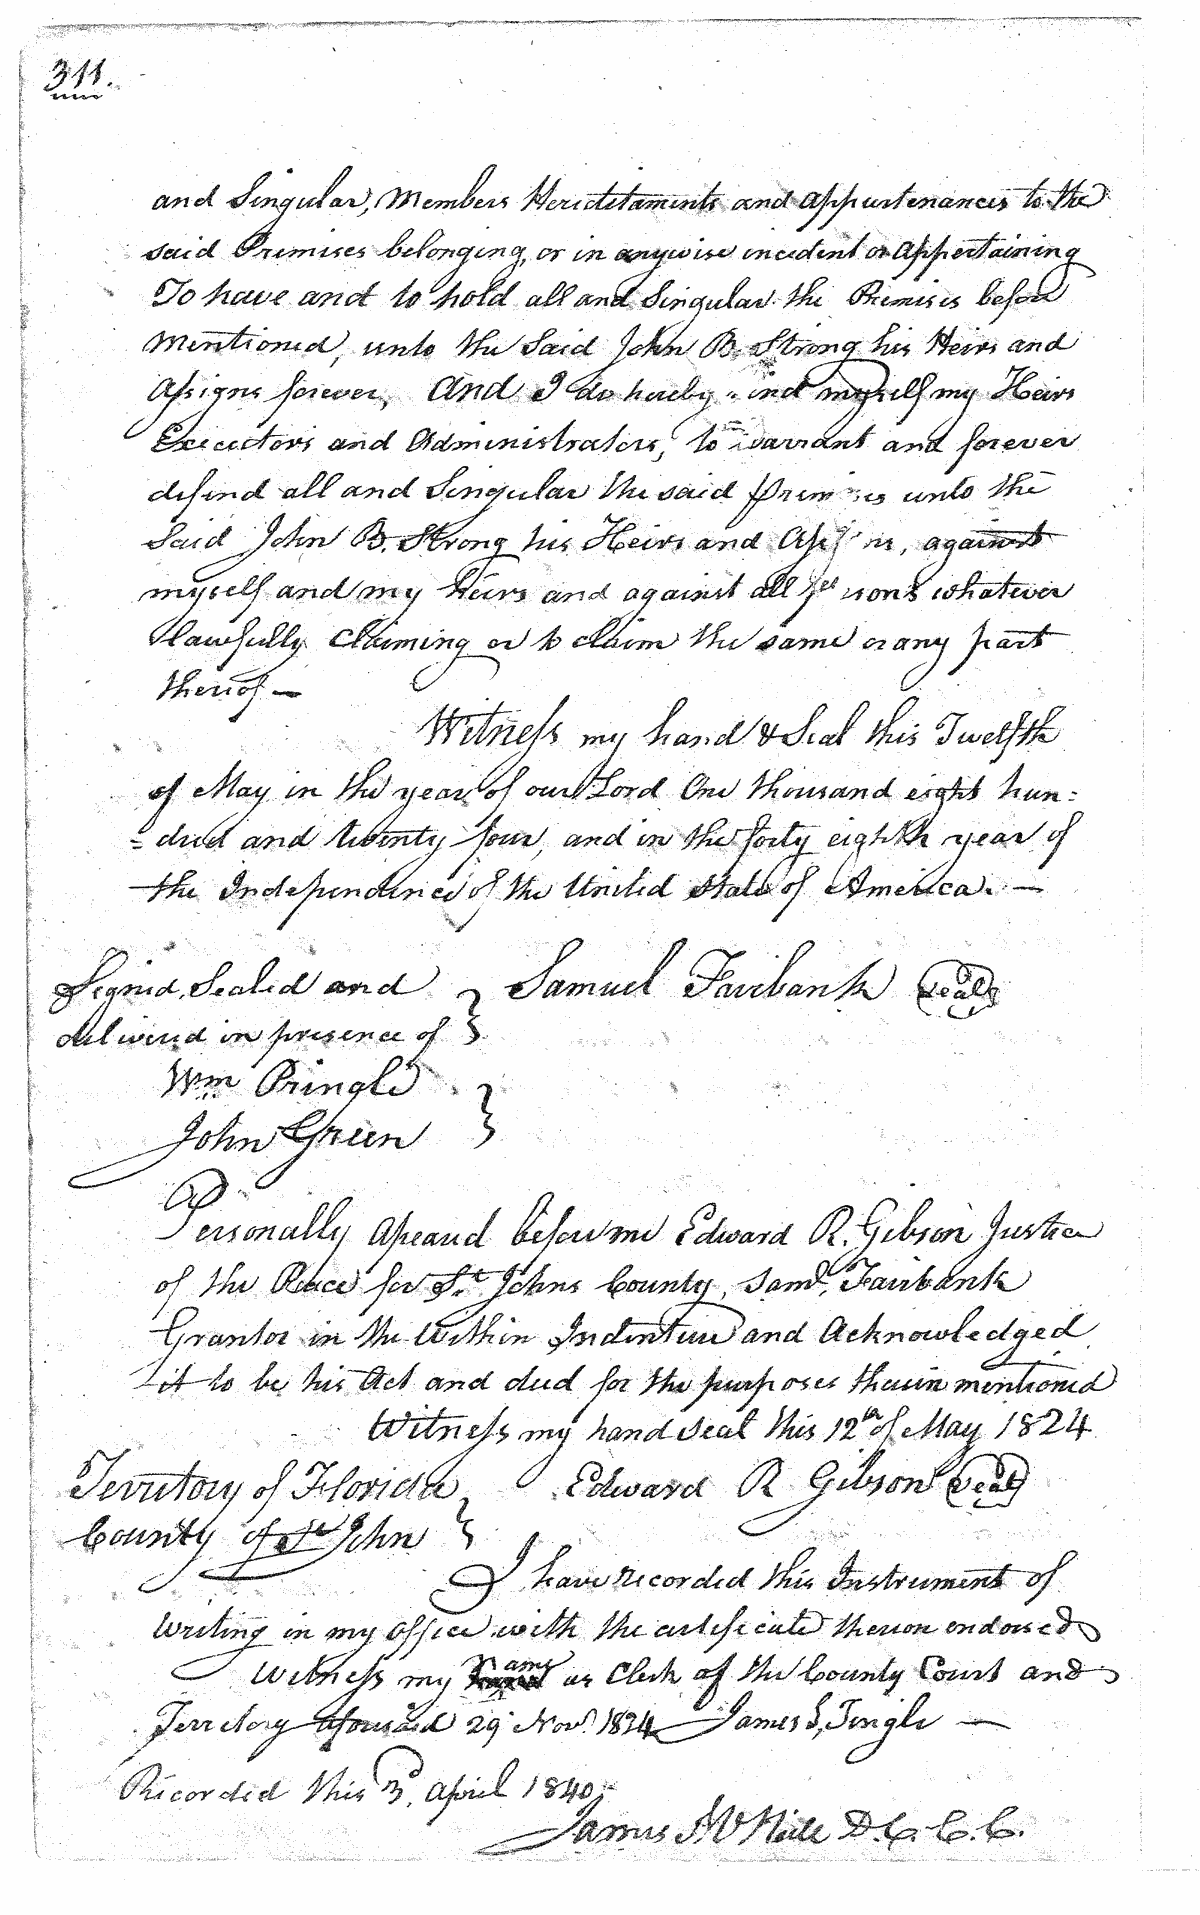 311.
and Singular, Members Hereditaments and Appurtenances to the
said Premises belonging, or in anywise incedent or Appertaining
To have and to hold all and Singular the Premises before
Mentioned, unto the Said John B. Strong his Heirs and
Assigns forever, And I do hereby bind myself my Heirs
Executors and Administrators, to warrant and forever
defend all and Singular the said premises unto the
Said John B. Strong his Heirs and Assigns, against
myself and my Heirs and against all persons whatever
lawfully Claiming or to claim the same or any part
thereof —
Witness my hand & Seal this Twelfth
of May in the year of our Lord One thousand eight hun=
=dred and twenty four, and in the forty eighth year of
the Independence of the United State of America. —
Signed, Sealed and } Samuel Fairbank Seal
delivered in presence of }
Wm Pringle }
John Green }
Personally Apeared before me Edward R. Gibson Justice
of the Peace for St. Johns County, Saml. Fairbank
Grantor in the Within Indenture and Acknowledged
it to be his Act and deed for the purposes therein mentioned
Witness my hand Seal this 12th of May 1824
Territory of Florida } Edward R Gibson Seal
County of St John }
I have recorded this Instrument of
Writing in my office with the certificate thereon endorsed
Witness my name as Clerk of the County Court and
Territory aforesaid 29 Novr. 1824 James S. Tingle —
Recorded this 3d. April 1840,
James D. C. C. C.